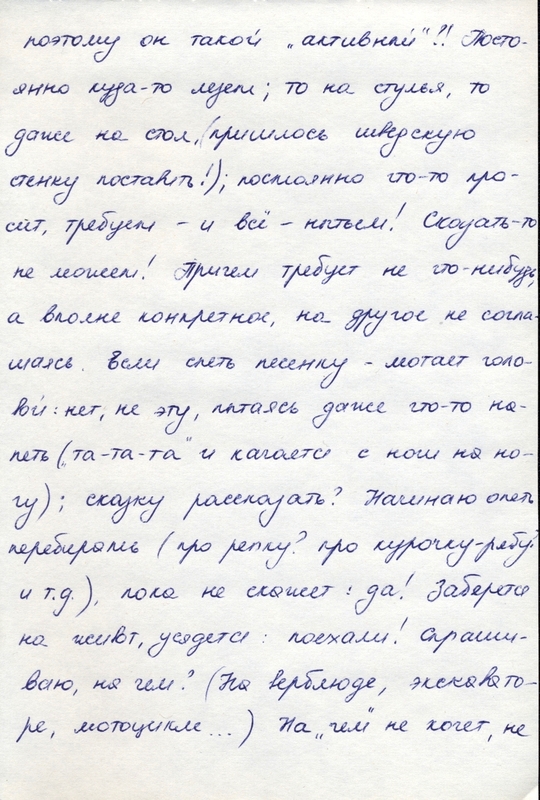 поэтому он такой „активный"!! Посто-
янно куда-то лезет; то на стулья, то
даже на стол, (пришлось шведскую
стенку поставить!); постоянно что-то про-
сит, требует - и всё - нытьем! Сказать-то
не может! Причем требует не что-нибудь,
а вполне конкретное, на другое не согла-
шаясь. Если спеть песенку - мотает голо-
вой: нет, не эту, пытаясь даже что-то на-
петь („та-та-та" и качается с ноги на но-
гу); сказку рассказать? Начинаю опять
перебирать (про репку? про курочку-рябу?
и т.д.), пока не скажет: да! Заберется
на живот, усядется: поехали! Спраши-
ваю, на чем? (На верблюде, экскавато-
ре, мотоцикле...) На „чем" не хочет, не